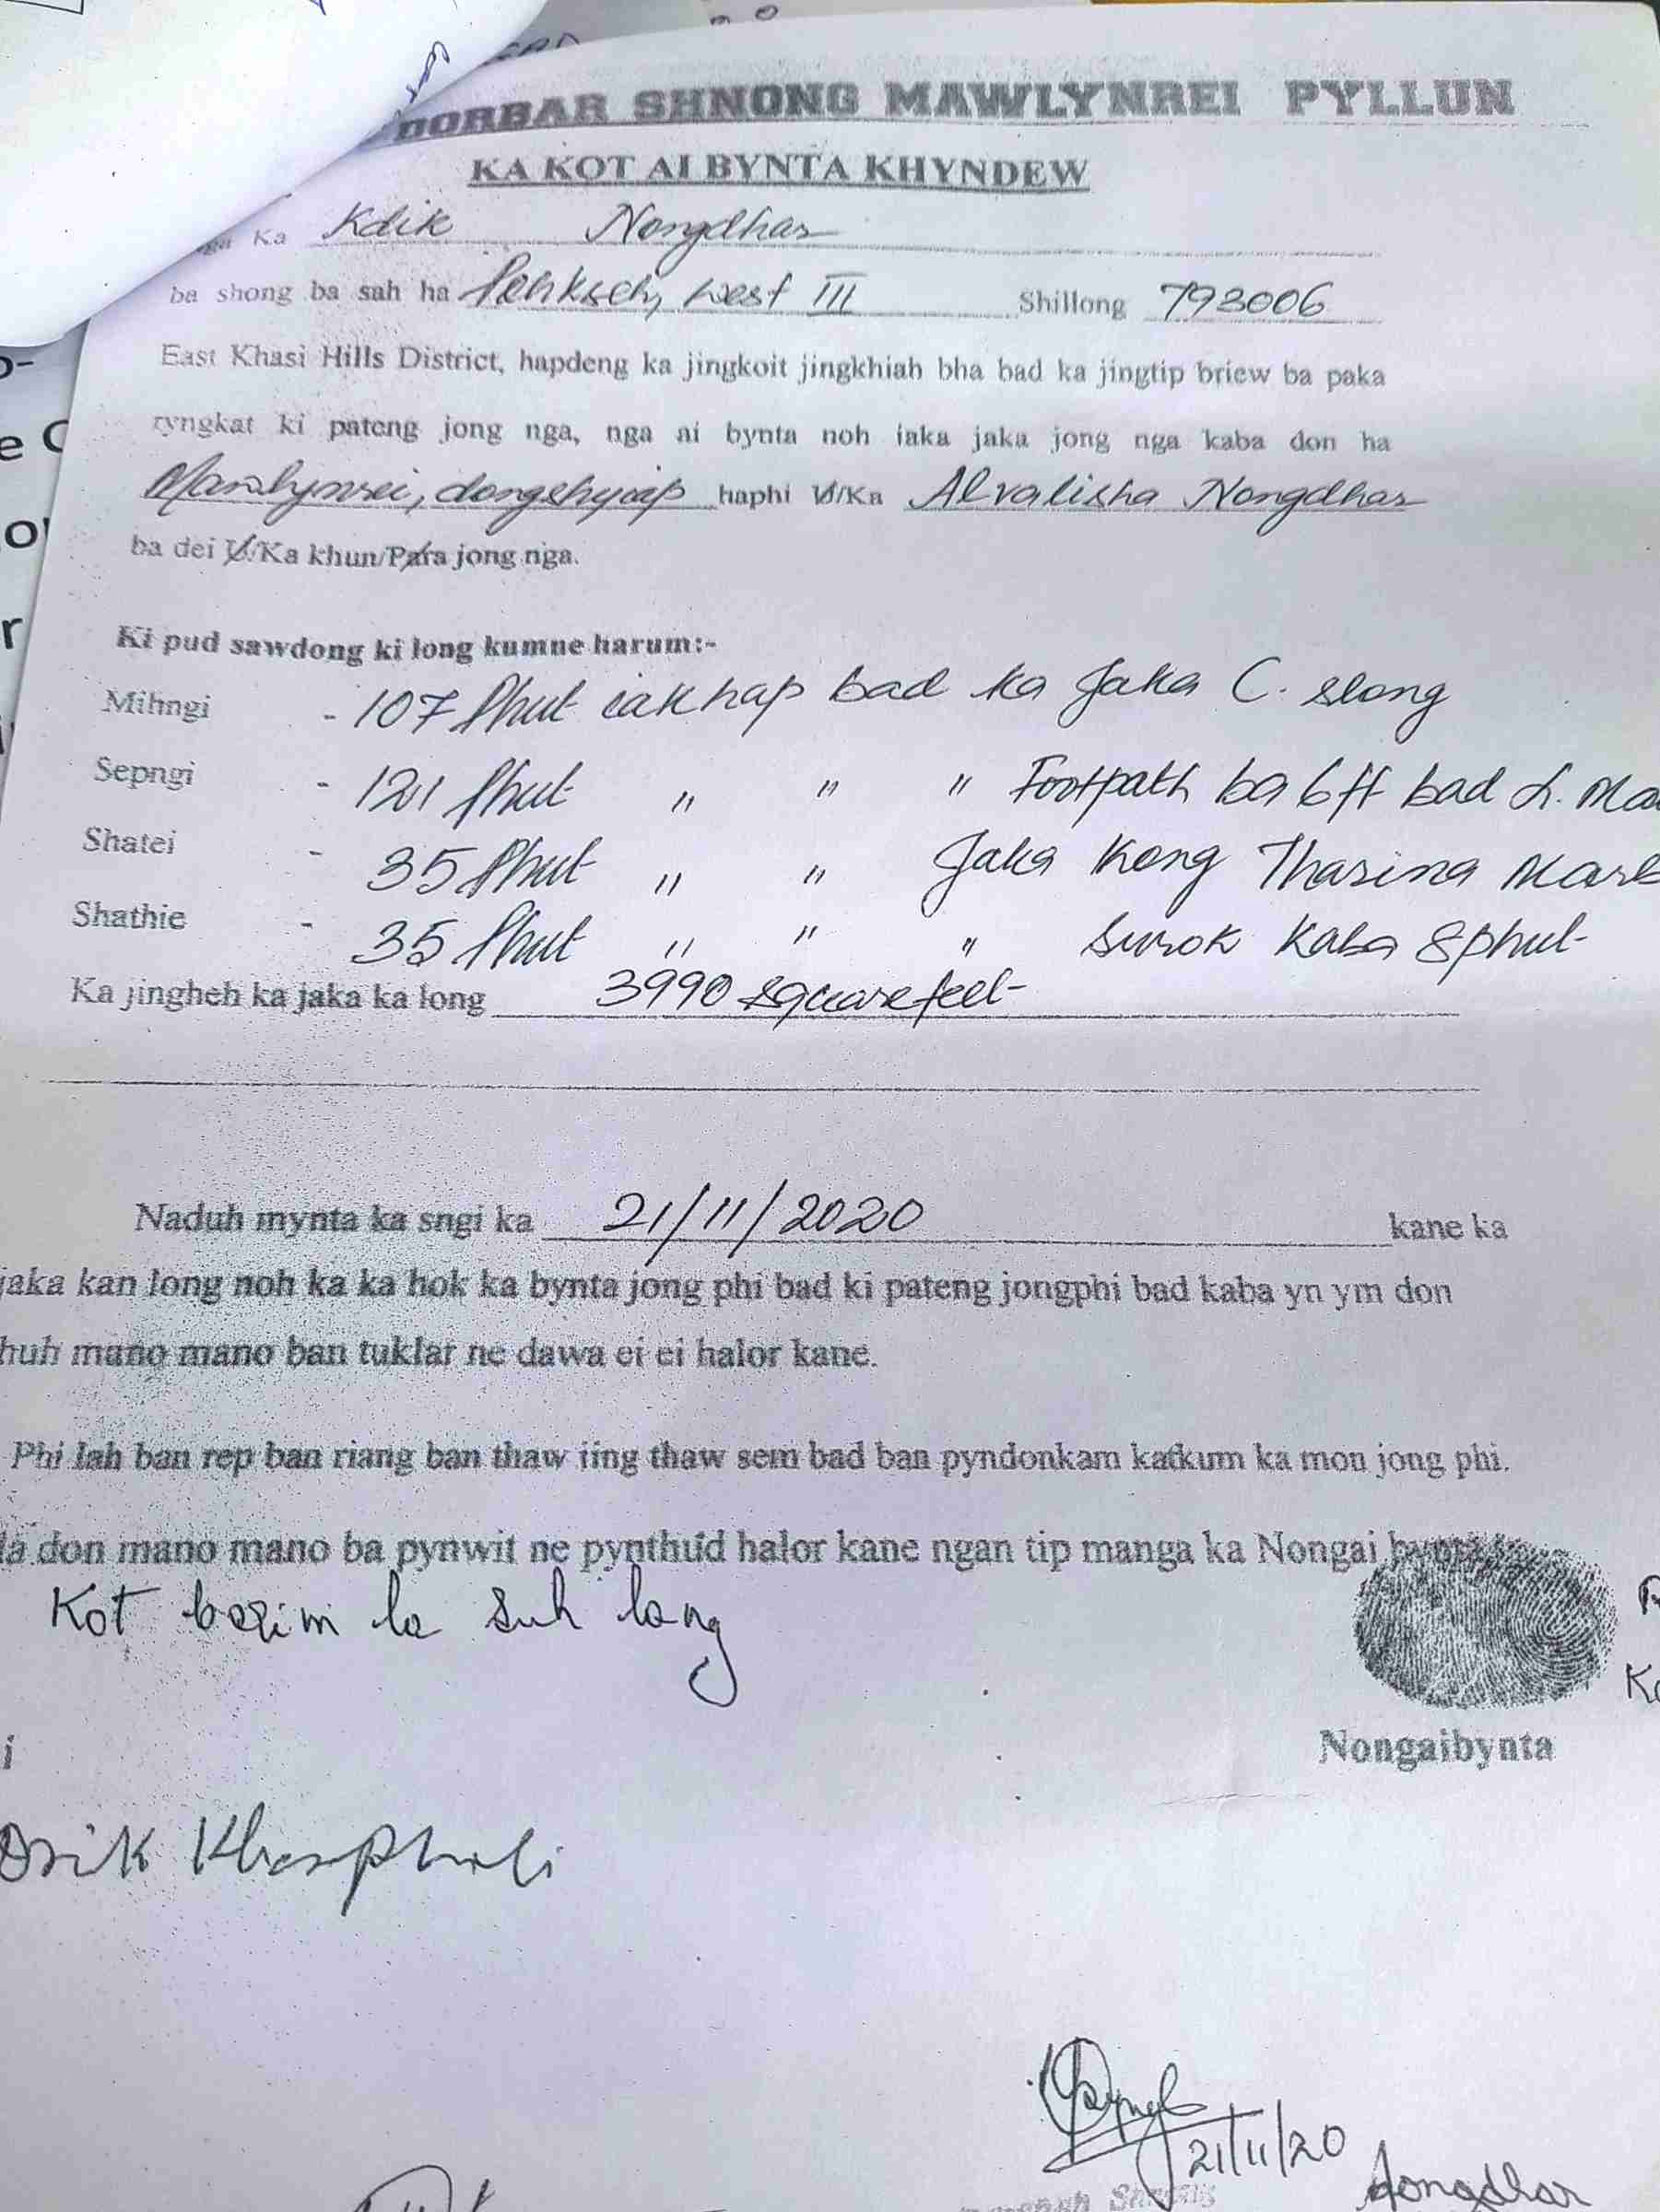 DORBAR SHNONG MAWLYNREI PYLLUN
KA KOT AI BYNTA KHYNDEW
nga Ka Kdik Nongdhar
ba shong ba sah ha West III Shillong 793006
East Khasi Hills District, hapdeng ka jingkoit jingkhiah bha bad ka jingtip briew ba paka
ryngkat ki pateng jong nga, nga ai bynta noh iaka jaka jong nga kaba don ha
Mawlynrei, dongshyiap haphi U/Ka Alvalisha Nongdhar
ba dei U/Ka khun/Para jong nga.
Ki pud sawdong ki long kumne harum:-
Mihngi - 107 Phut iakhap bad ka Jaka C. Slong
Sepngi - 121 Phut " " " Footpath ba 6ft bad L. Ma
Shatei - 35 Phut " " Jaka Kong Tharina Mar
Shathie - 35 Phut " " " Surok Kaba 8phut
Ka jingheh ka jaka ka long 3990 square feet
Naduh mynta ka sngi ka 21/11/2020 kane ka
jaka kan long noh ka ka hok ka bynta jong phi bad ki pateng jongphi bad kaba yn ym don
huh mano mano ban tuklar ne dawa ei ei halor kane.
Phi lah ban rep ban riang ban thaw iing thaw sem bad ban pyndonkam katkum ka mon jong phi.
la don mano mano ba pynwit ne pynthut halor kane ngan tip manga ka Nongai bynta
Kot barim la suh lang
K
i
Nongaibynta
Orik Kharphuli
21/11/20
Nongdhar